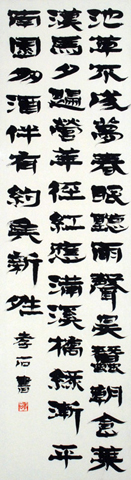 池草不成夢春眠聽雨聲吳蠶朝食葉
漢馬夕歸營華徑紅應滿溪橋綠漸平
南園多酒伴有約矦新夝
石書